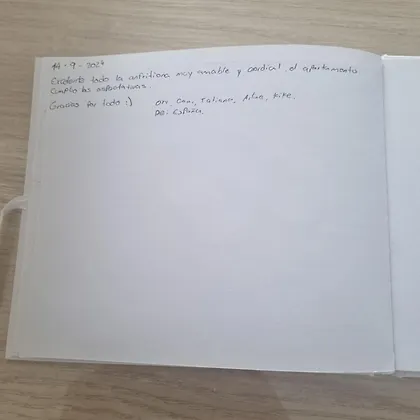 14 - 9 - 2024
Excelente todo la anfitriona muy amable y cordial el apartamento
Cumplio las expectativas.
Gracias por todo :) Ori, Dani, Tatiana, Kike.
De: España